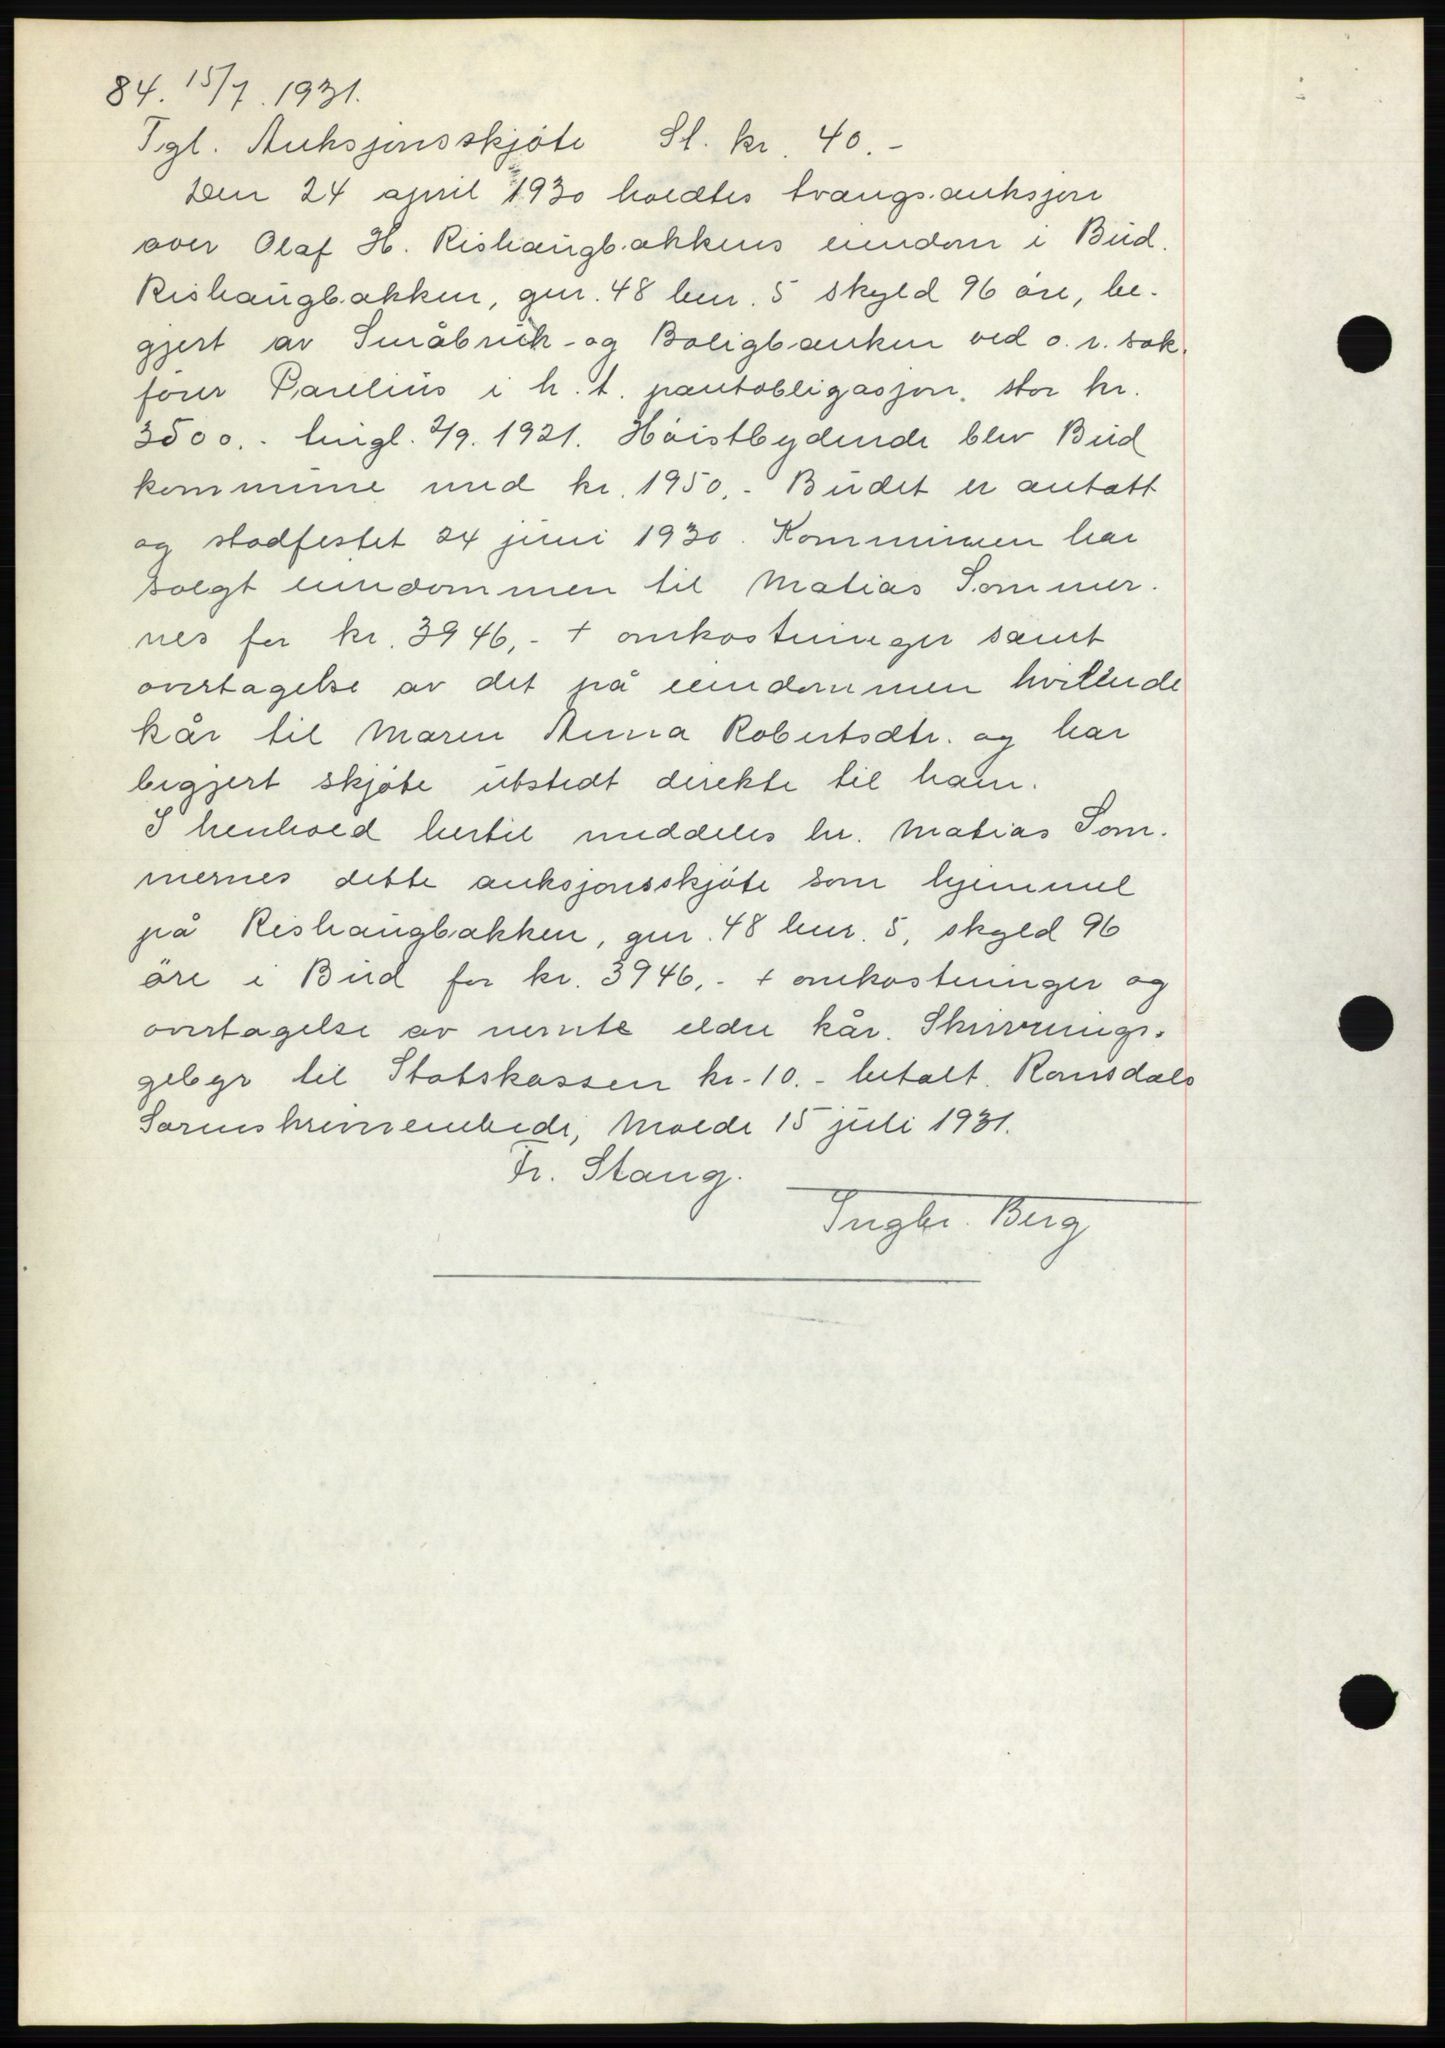 84. 15/7. 1931.
Tgl. Auksjonsskjöte St. kr. 40.-
Den 24 april 1930 holdtes tvangsauksjon
over Olaf H. Rishaugbakkens eiendom i Bud.
Rishaugbakken, gnr. 48 bnr. 5 skyld 96 öre, be-
gjert av Småbruk- og Boligbanken ved o.r. sak-
förer Parelius i h.t. pantobligasjon, stor kr.
3500.- tingl. 2/9. 1921. Höistbydende blev Bud
kommune med kr. 1950.- Budet er antatt
og stadfestet 24 juni 1930. Kommunen har
solgt eiendommen til Matias Sommer-
nes for kr. 3946,- + omkostninger samt
overtagelse av det på eiendommen hvilende
kår til Maren Anna Robertsdtr. og har
begjert skjöte utstedt direkte til ham.
I henhold hertil meddeles hr. Matias Som-
mernes dette auksjonsskjöte som hjemmel
på Rishaugbakken, gnr. 48 bnr. 5, skyld 96
öre i Bud for kr. 3946,- + omkostninger og
overtagelse av nevnte eldre kår. Skrivnings-
gebyr til Statskassen kr. 10.- betalt. Romsdals
Sorenskriverembede, Molde 15 juli 1931.
Fr. Stang.
Ingbr. Berg